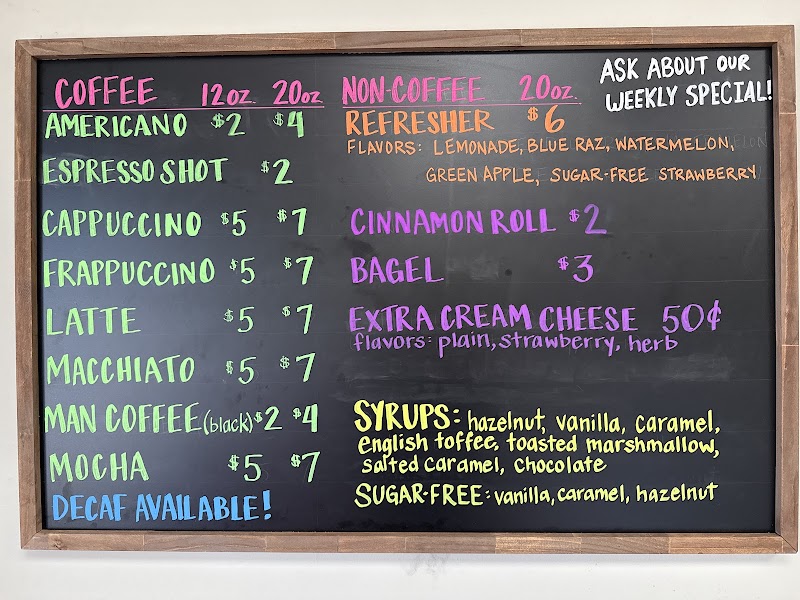 COFFEE 12oz. 20oz
AMERICANO $2 $4
ESPRESSO SHOT $2
CAPPUCCINO $5 $7
FRAPPUCCINO $5 $7
LATTE $5 $7
MACCHIATO $5 $7
MAN COFFEE (black) $2 $4
MOCHA $5 $7
DECAF AVAILABLE!
NON-COFFEE 20oz.
REFRESHER $6
FLAVORS: LEMONADE, BLUE RAZ, WATERMELON,
GREEN APPLE, SUGAR-FREE STRAWBERRY
CINNAMON ROLL $2
BAGEL $3
EXTRA CREAM CHEESE 50¢
flavors: plain, strawberry, herb
SYRUPS: hazelnut, vanilla, caramel,
english toffee, toasted marshmallow,
salted caramel, chocolate
SUGAR-FREE: vanilla, caramel, hazelnut
ASK ABOUT OUR
WEEKLY SPECIAL!